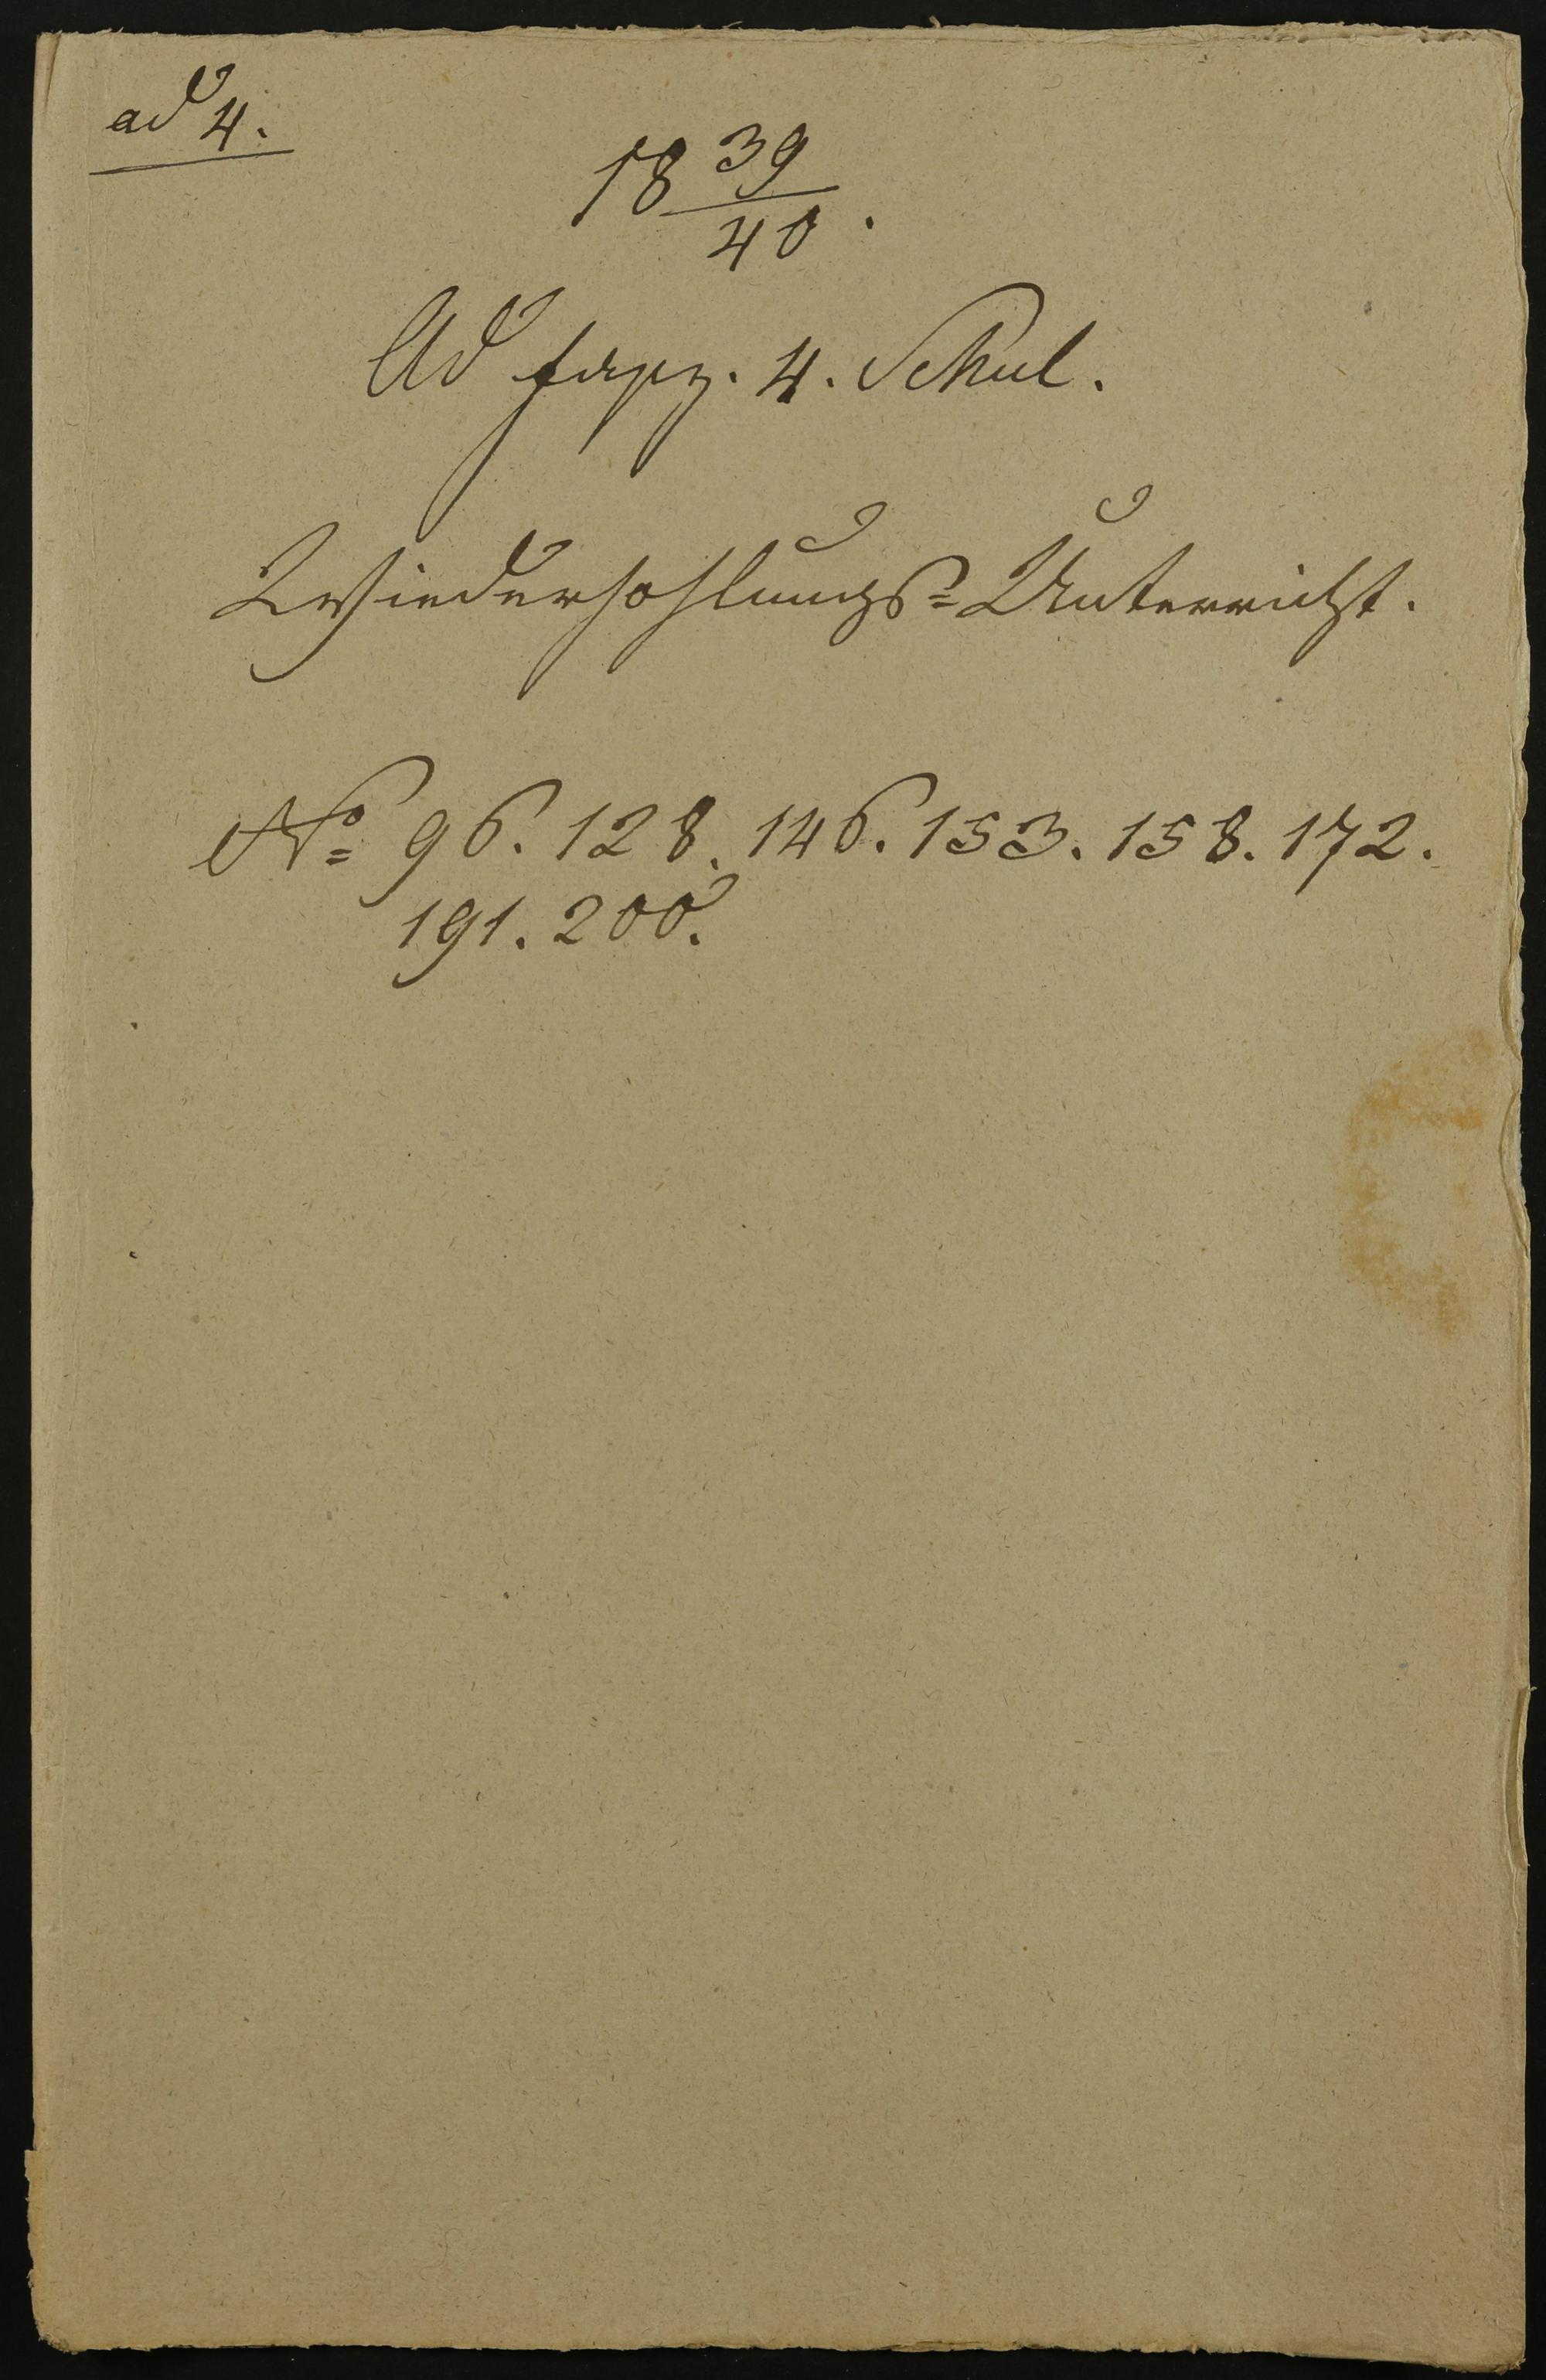 ad 4.
18 39/40.
Ad fasz. 4. Schul.
Wiederhohlungs=Unterricht.
No 96. 128. 146. 153. 158. 172.
191. 200.